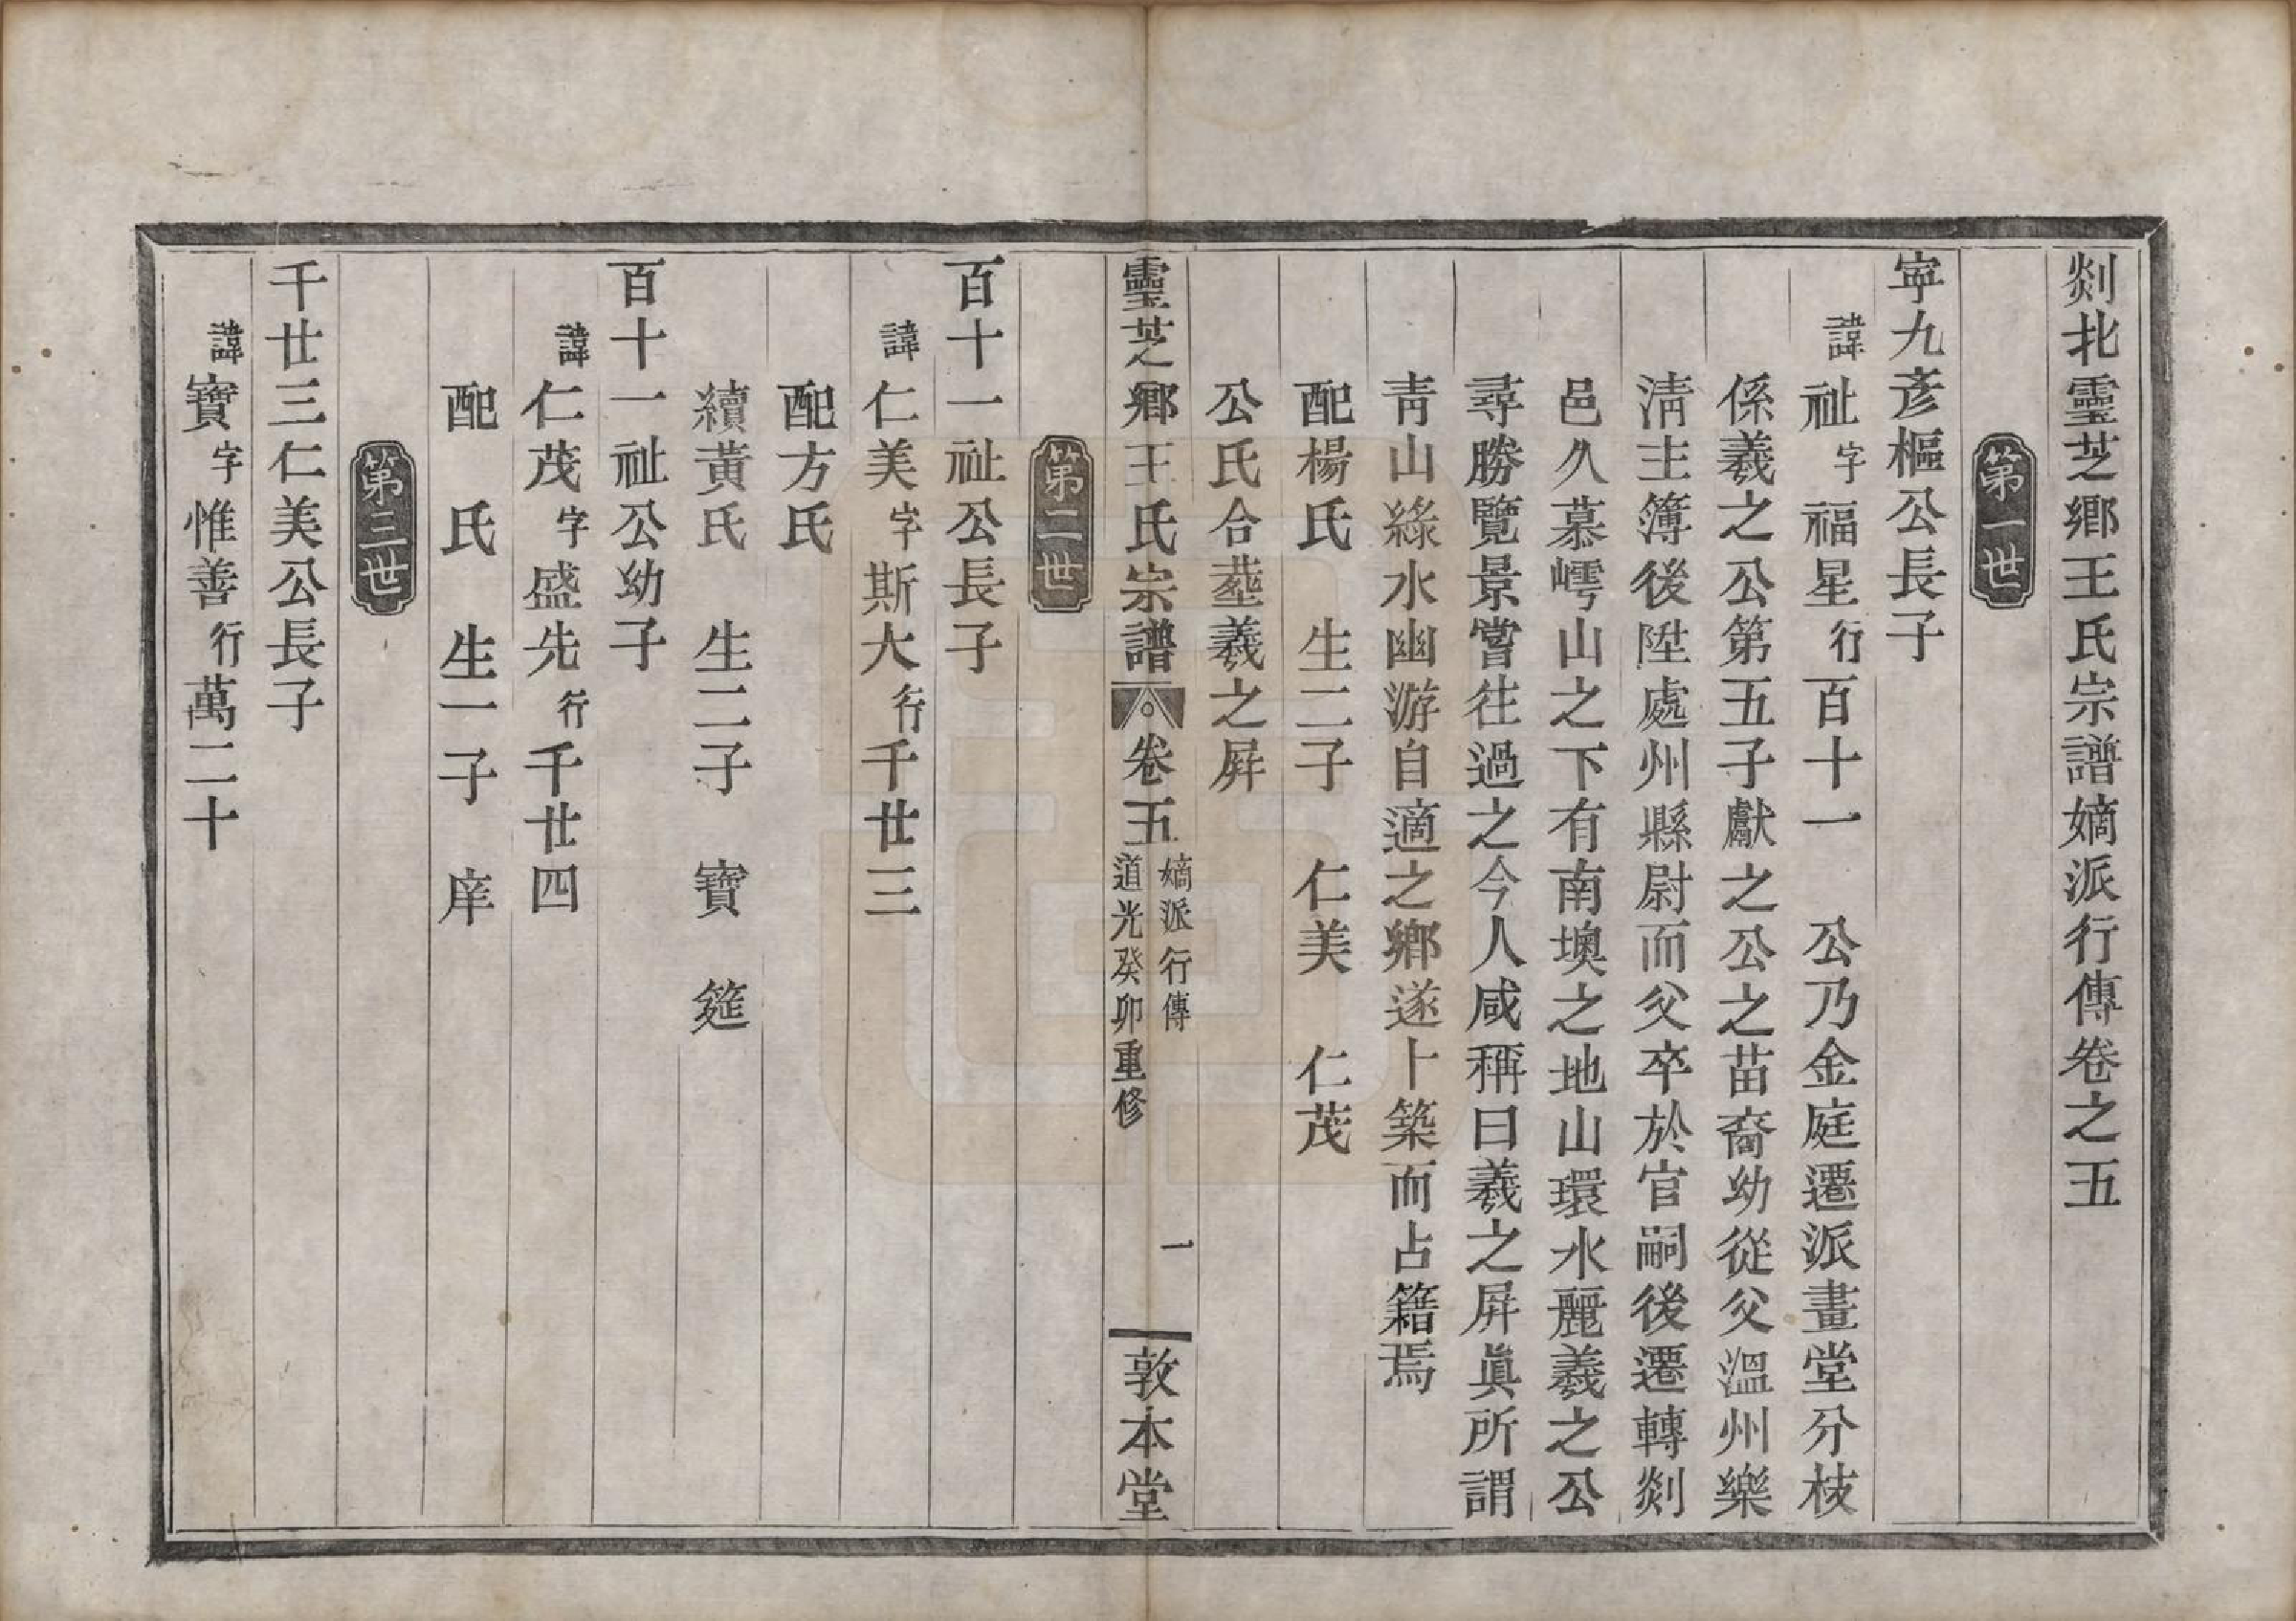 剡北靈芝鄉王氏宗譜嫡派行傳卷之五
第一世
寜九彥樞公長子
諱祉字福星行百十一 公乃金庭遷派畫堂分枝
係羲之公第五子獻之公之苗裔幼從父溫州樂
淸主簿後陞處州縣尉而父卒於官嗣後遷轉剡
邑久慕嶀山之下有南墺之地山環水麗羲之公
尋勝覽景嘗徃過之今人咸稱曰羲之屏眞所謂
靑山綠水幽游自適之鄉遂卜築而占籍焉
配楊氏 生二子 仁美 仁茂
公氏合塟羲之屏
靈芝鄉王氏宗譜 卷五 嫡派行傳 道光癸卯重修 一 敦本堂
第二世
百十一祉公長子
諱仁美字斯大行千廿三
配方氏
續黃氏 生二子 寶 筵
百十一祉公幼子
諱仁茂字盛先行千廿四
配 氏 生一子 庠
第三世
千廿三仁美公長子
諱寶字惟善行萬二十